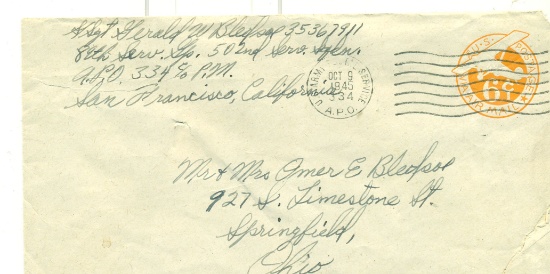 S/Sgt Gerald W Bledsoe 35367911
8th Serv. Gp. 502nd Serv. Sqen.
A.P.O. 334 c/o P.M.
San Francisco, California
ARMY POSTAL SERVICE
OCT 9
1945
334
A.P.O.
U.S. POSTAGE
6¢
VIA AIR MAIL
Mr & Mrs Omer E Bledsoe
927 S. Limestone St.
Springfield,
Ohio